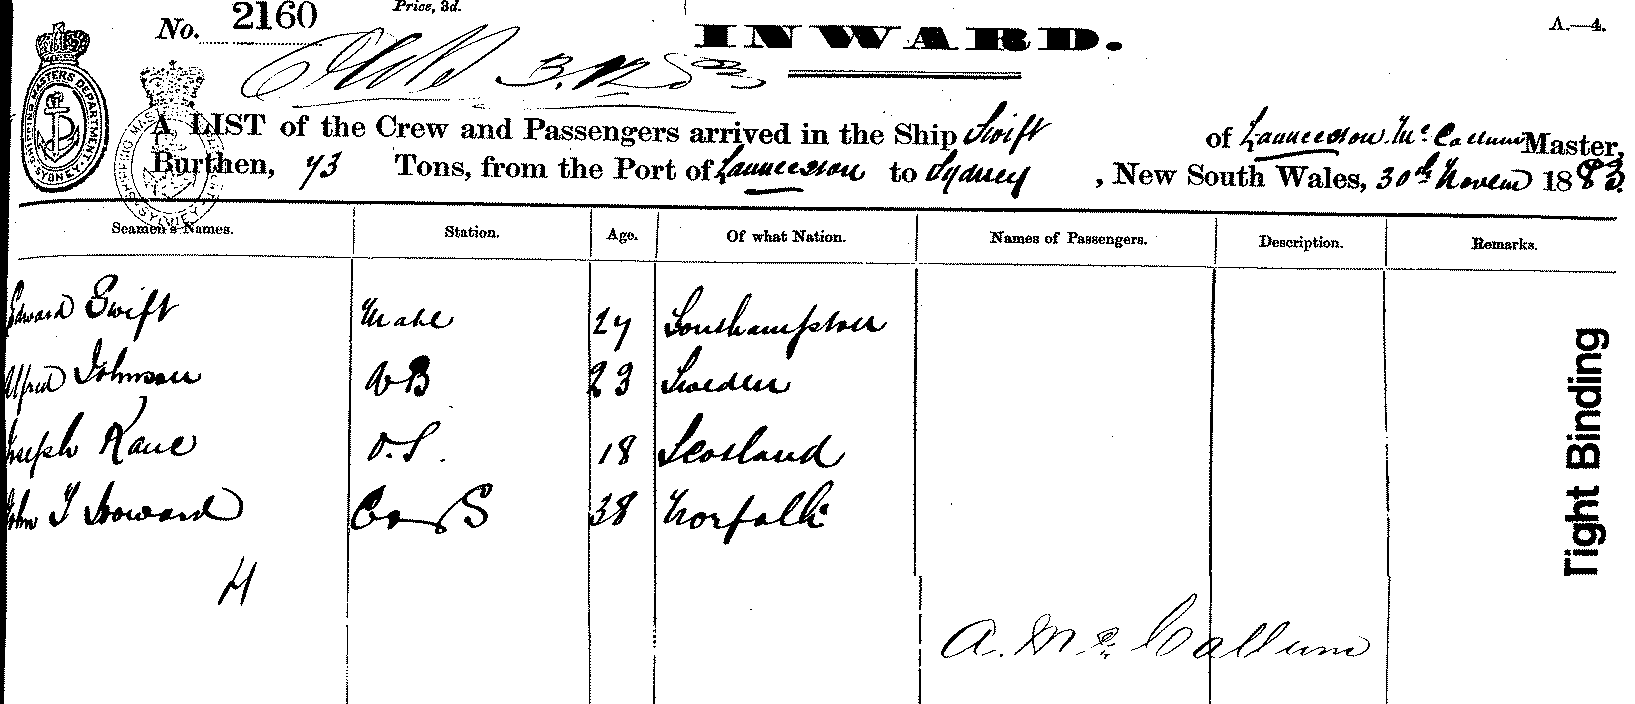 No. 2160
Price, 3d.
INWARD.
A.—4.
SHIPPING MASTERS DEPARTMENT SYDNEY
A LIST of the Crew and Passengers arrived in the Ship Swift of Launceston. Mc Callum Master,
Burthen, 73 Tons, from the Port of Launceston to Sydney, New South Wales, 30th Novem 1883.
Seamen's Names. Station. Age. Of what Nation. Names of Passengers. Description. Remarks.
Edward Swift Mate 27 Southampton
Alfred Johnson AB 23 Sweden
Joseph Kane O.S. 18 Scotland
John T Howard C & S 38 Norfolk
4
A. Mc Callum
Tight Binding